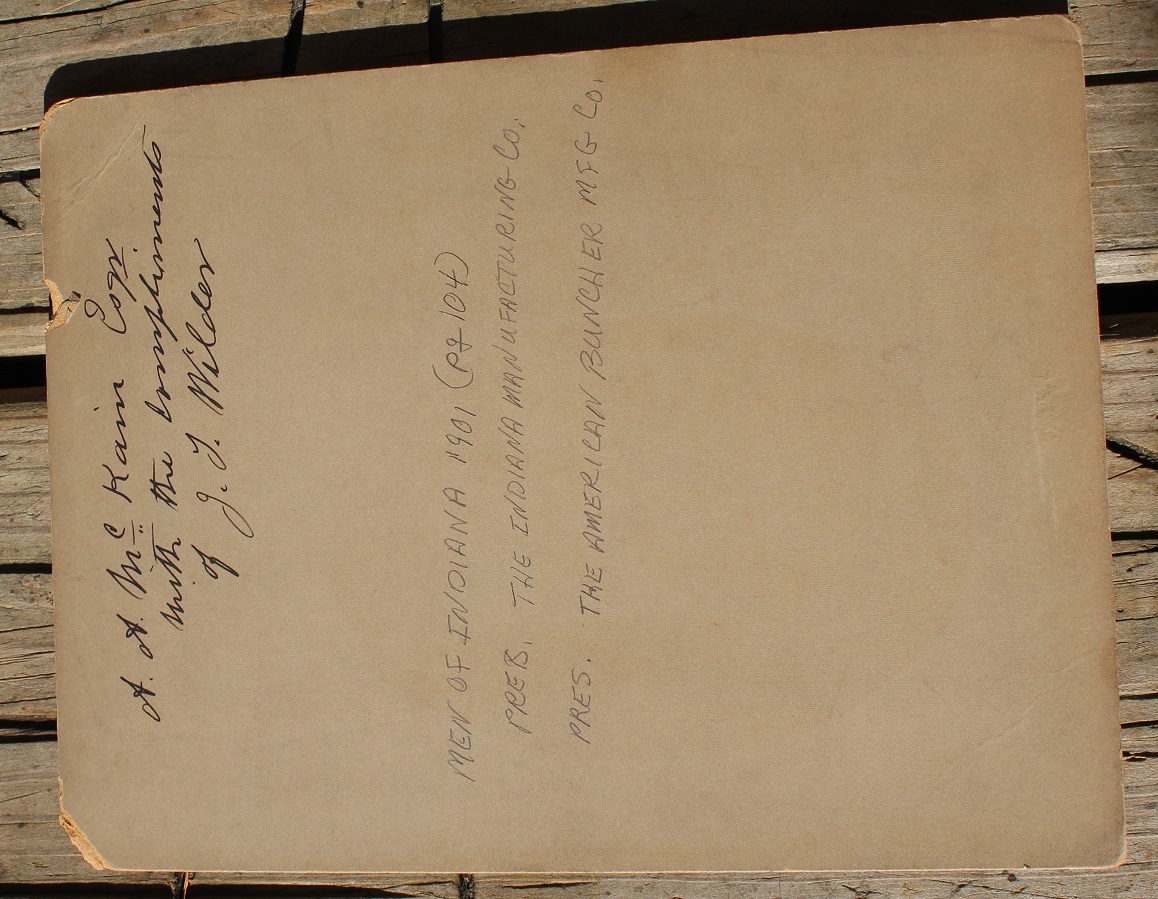 A. A. McKain Esqr
with the compliments
of J. T. Wilder
MEN OF INDIANA 1901 (Pg 104)
PRES. THE INDIANA MANUFACTURING CO.
PRES. THE AMERICAN BUNCHER MFG CO.